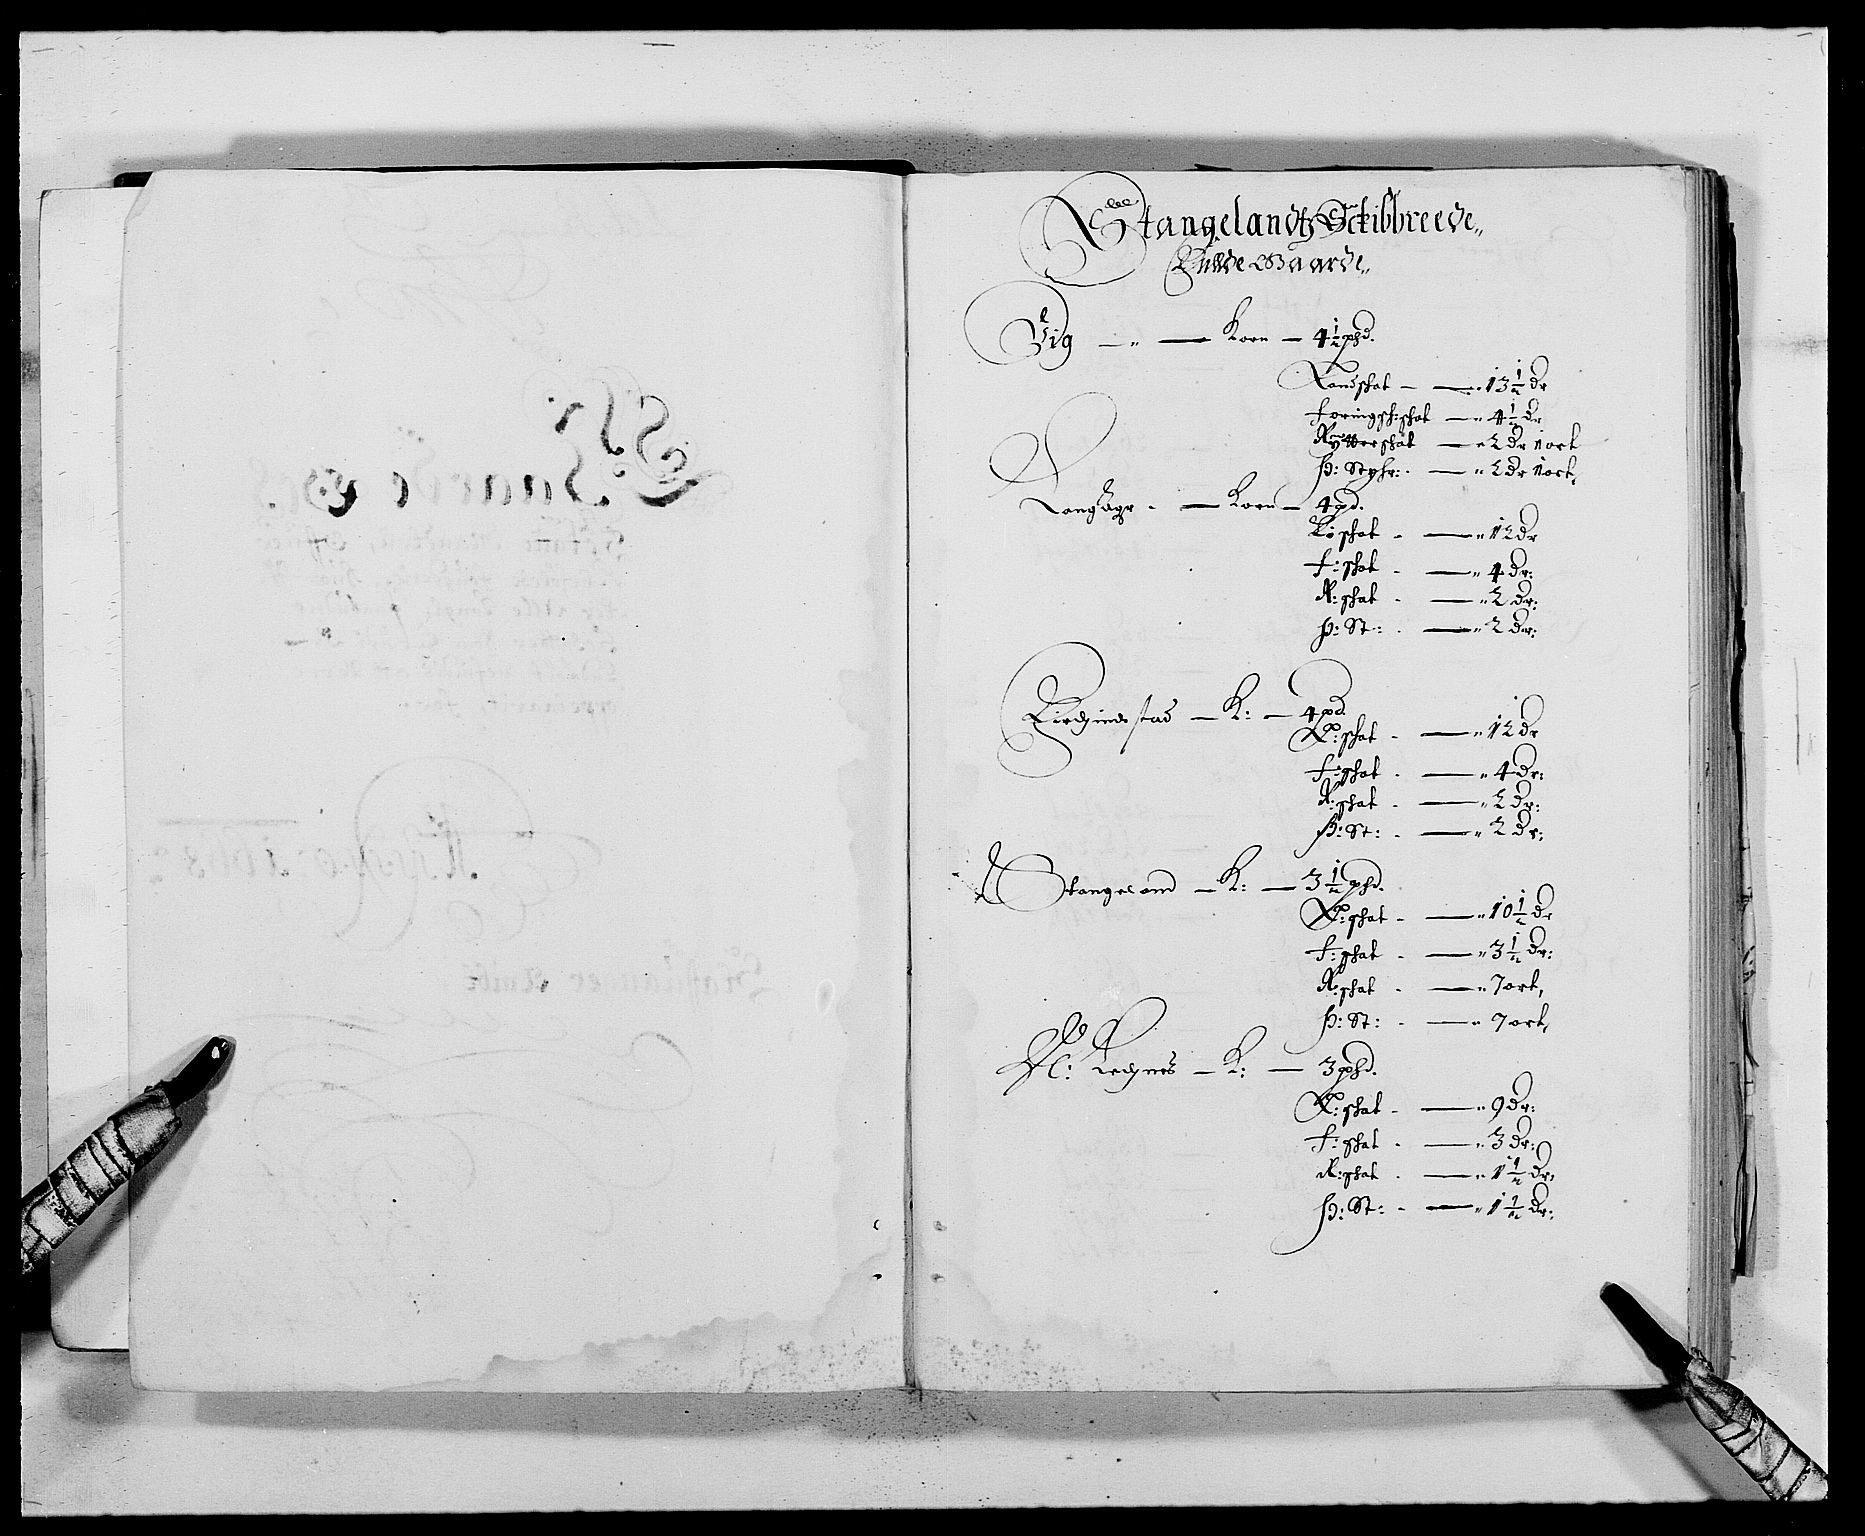 Stangelandtz Sckibbreede„
Fulde Gaarde„
Vig — „ — Korn — 4½ phd.
Landschat - — „ 13½ dr
foringsch:schat — „ 4½ dr
Rytterschat — „ 2 dr 1 ort
H: Styhr: — „ 2 dr 1 ort,
Langager - — Korn — 4 pd.
L: schat - — „ 12 dr
f: schat - — „ 4 dr:
R: schat - — „ 2 dr:
H: St: - — „ 2 dr:
— K: — 4 pd.
L: schat - — „ 12 dr
f: schat - — „ 4 dr:
R: schat - — „ 2 dr:
H: St: - — „ 2 dr:
Stangeland — K: — 3½ phd.
L: schat - — „ 10½ dr
f: schat - — „ 3½ dr:
R: schat - — „ 7 ort,
H: St: - — „ 7 ort,
— K: — 3 phd.
L: schat - — „ 9 dr:
f: schat - — „ 3 dr:
R: schat - — „ 1½ dr:
H: St: - — „ 1½ dr: